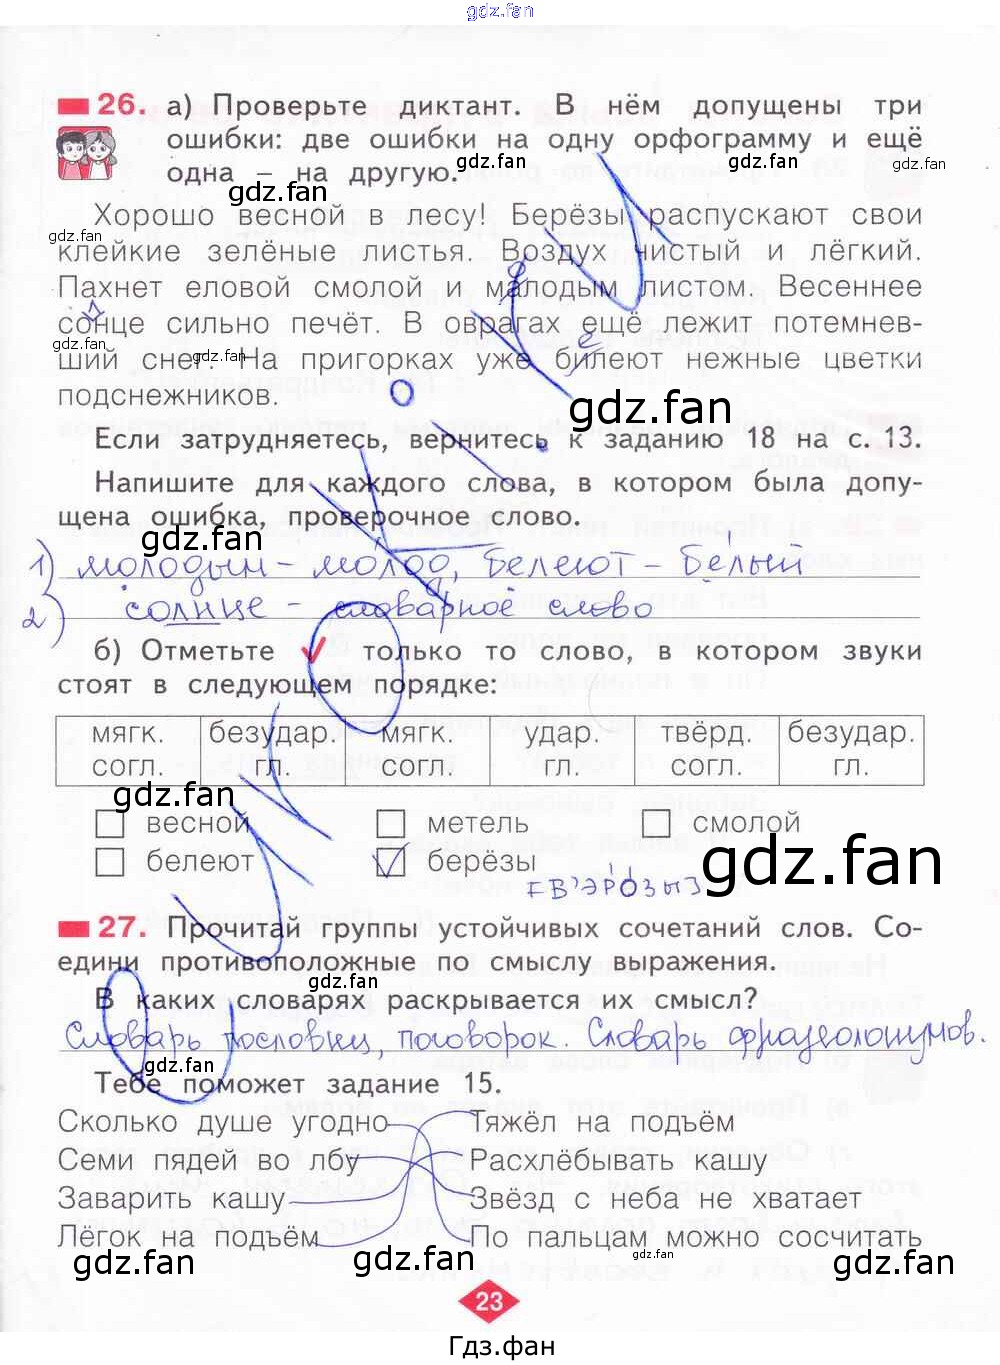 gdz.fan
26. а) Проверьте диктант. В нём допущены три
ошибки: две ошибки на одну орфограмму и ещё
одна – на другую.
gdz.fan
gdz.fan
gdz.fan
Хорошо весной в лесу! Берёзы распускают свои
gdz.fan
клейкие зелёные листья. Воздух чистый и лёгкий.
Пахнет еловой смолой и малодым листом. Весеннее
о
сонце сильно печёт. В оврагах ещё лежит потемнев-
gdz.fan
gdz.fan
е
ший снег. На пригорках уже билеют нежные цветки
подснежников.
gdz.fan
Если затрудняетесь, вернитесь к заданию 18 на с. 13.
Напишите для каждого слова, в котором была допу-
щена ошибка, проверочное слово.
gdz.fan
1) молодым – молод, белеют – белый
2) солнце – словарное слово
б) Отметьте ✓ только то слово, в котором звуки
стоят в следующем порядке:
мягк. согл. безудар. гл. мягк. согл. удар. гл. твёрд. согл. безудар. гл.
gdz.fan
весной метель смолой
gdz.fan
белеют берёзы
27. Прочитай группы устойчивых сочетаний слов. Со-
едини противоположные по смыслу выражения.
gdz.fan
В каких словарях раскрывается их смысл?
Словарь пословиц, поговорок. Словарь фразеологизмов.
gdz.fan
Тебе поможет задание 15.
Сколько душе угодно Тяжёл на подъём
Семи пядей во лбу Расхлёбывать кашу
Заварить кашу Звёзд с неба не хватает
Лёгок на подъём По пальцам можно сосчитать
gdz.fan
gdz.fan
gdz.fan
23
Гдз.фан